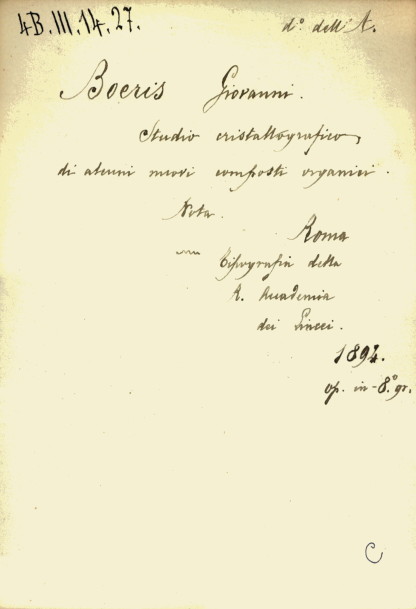 4B.III.14.27.
d.º dell'A.
Boeris Giovanni.
Studio cristallografico
di alcuni nuovi composti organici.
Nota.
Roma
Tipografia della
R. Accademia
dei Lincei.
1894.
op. in-8.º gr.
C